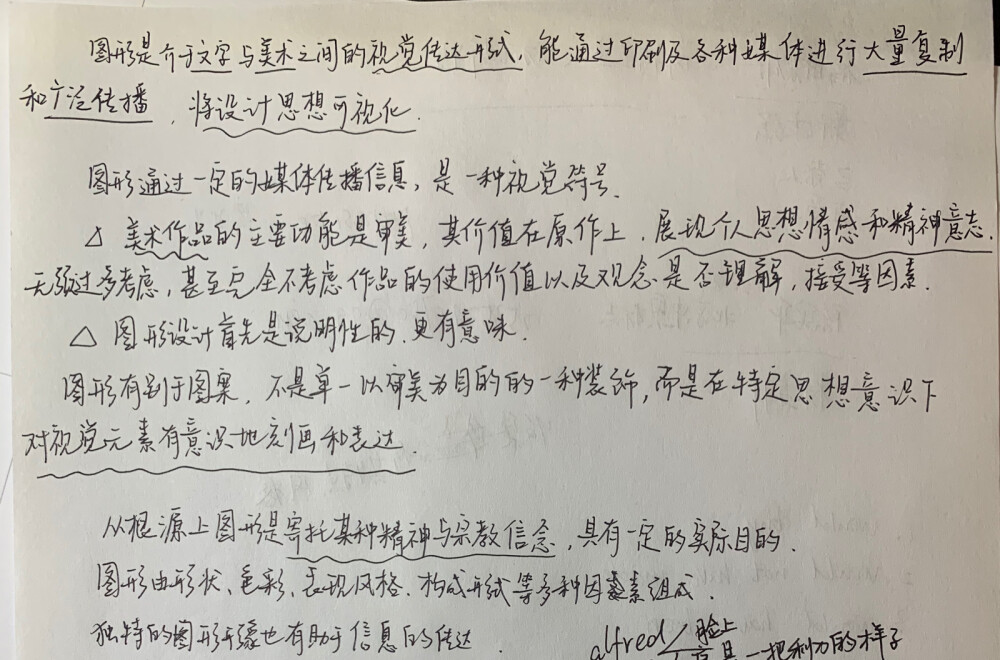 图形是介于文字与美术之间的视觉传达形式，能通过印刷及各种媒体进行大量复制
和广泛传播，将设计思想可视化.
图形通过一定的媒体传播信息，是一种视觉符号.
△ 美术作品的主要功能是审美，其价值在原作上，展现个人思想情感和精神意志.
无须过多考虑，甚至完全不考虑作品的使用价值以及观念是否理解，接受等因素.
△ 图形设计首先是说明性的.更有意味.
图形有别于图案，不是单一以审美为目的的一种装饰，而是在特定思想意识下
对视觉元素有意识地刻画和表达.
从根源上图形是寄托某种精神与宗教信念，具有一定的实际目的.
图形由形状、色彩、表现风格、构成形式等多种因素组成.
独特的图形形象也有助于信息的传达
alfred 脸上
一把利刀的样子